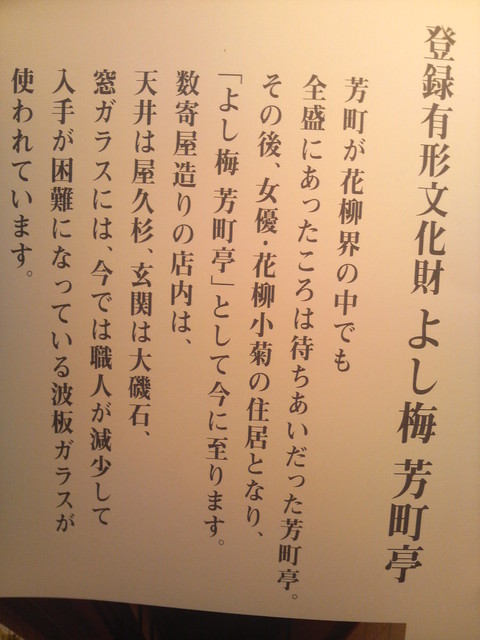 登録有形文化財 よし梅 芳町亭
芳町が花柳界の中でも
全盛にあったころは待ちあいだった芳町亭。
その後、女優・花柳小菊の住居となり、
「よし梅 芳町亭」として今に至ります。
数寄屋造りの店内は、
天井は屋久杉、玄関は大磯石、
窓ガラスには、今では職人が減少して
入手が困難になっている波板ガラスが
使われています。